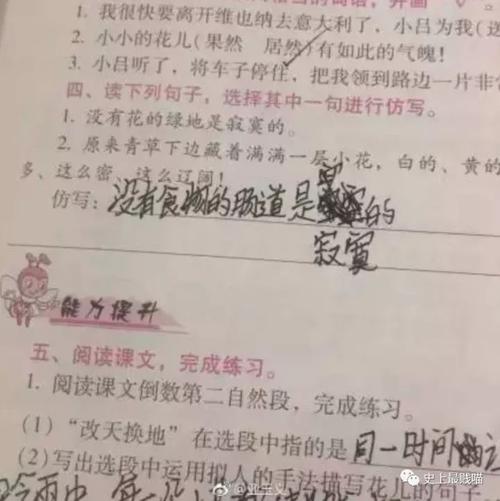 1. 我很快要离开维也纳去意大利了，小吕为我(送
2. 小小的花儿(果然 居然)有如此的气魄！
3. 小吕听了，将车子停住，把我领到路边一片非
四、读下列句子，选择其中一句进行仿写。
1. 没有花的绿地是寂寞的。
2. 原来青草下边藏着满满一层小花，白的、黄的
多、这么密、这么辽阔！
仿写：没有食物的肠道是 的
寂寞
能力提升
五、阅读课文，完成练习。
1. 阅读课文倒数第二自然段，完成练习。
(1) “改天换地”在选段中指的是同一时间
(2) 写出选段中运用拟人的手法描写花儿的句子
史上最贱喵